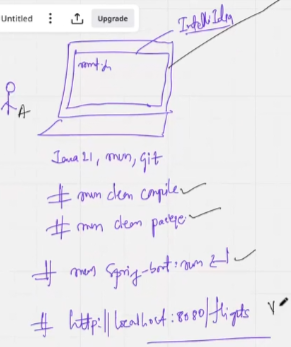 Untitled Upgrade
IntelliIdea
A
Java 21, mvn, git
# mvn clean compile
# mvn clean package
# mvn spring-boot:run
# http://localhost:8080/flights